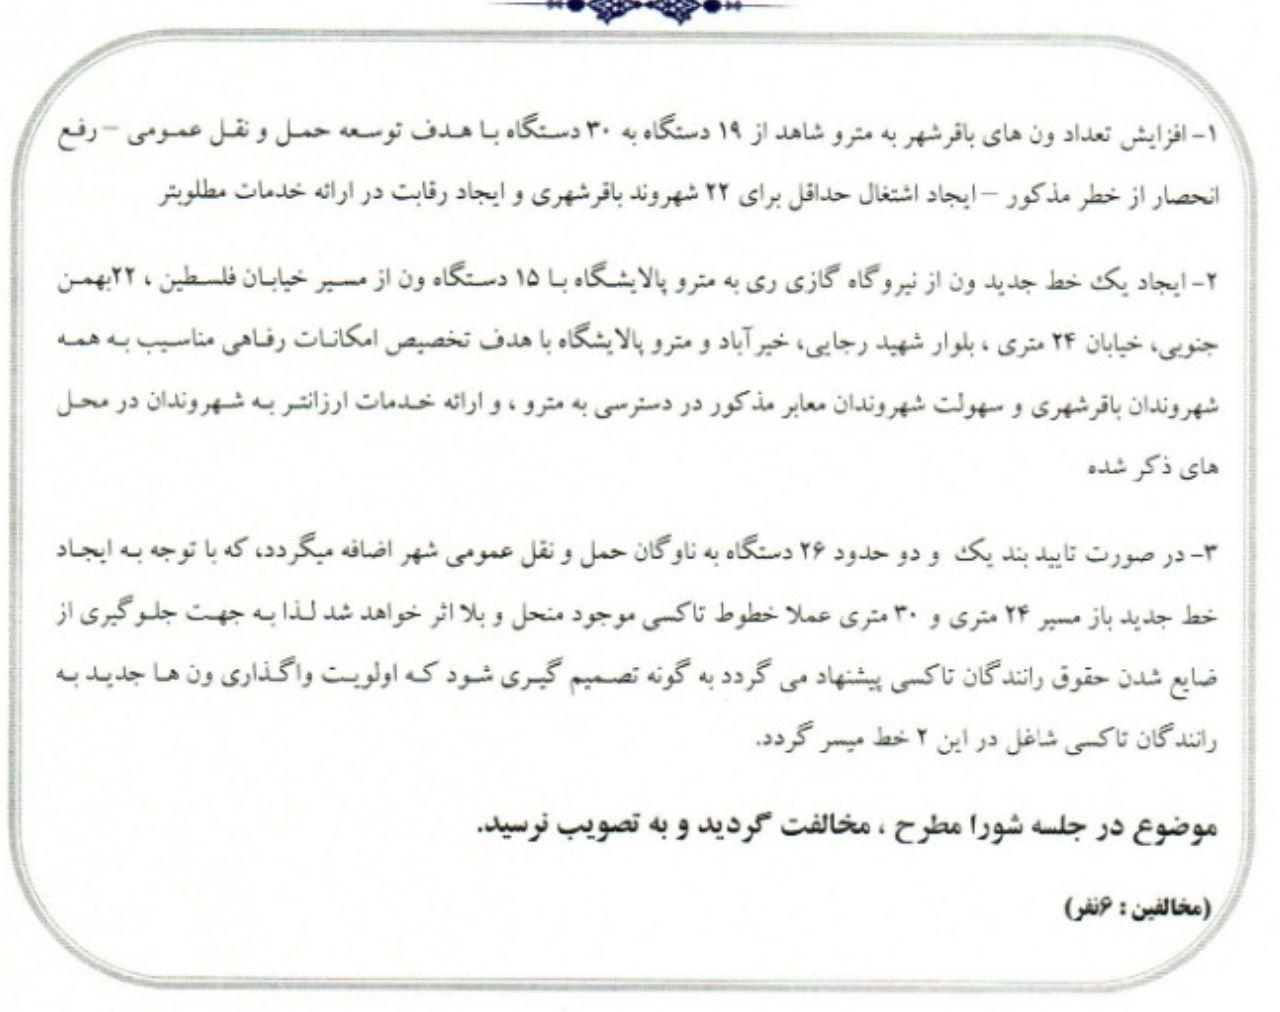 ۱- افزایش تعداد ون های باقرشهر به مترو شاهد از ۱۹ دستگاه به ۳۰ دستگاه با هدف توسعه حمل و نقل عمومی – رفع
انحصار از خطر مذکور – ایجاد اشتغال حداقل برای ۲۲ شهروند باقرشهری و ایجاد رقابت در ارائه خدمات مطلوبتر
۲- ایجاد یک خط جدید ون از نیروگاه گازی ری به مترو پالایشگاه با ۱۵ دستگاه ون از مسیر خیابان فلسطین ، ۲۲بهمن
جنوبی، خیابان ۲۴ متری ، بلوار شهید رجایی، خیرآباد و مترو پالایشگاه با هدف تخصیص امکانات رفاهی مناسیب به همه
شهروندان باقرشهری و سهولت شهروندان معابر مذکور در دسترسی به مترو ، و ارائه خدمات ارزانتر به شهروندان در محل
های ذکر شده
۳- در صورت تایید بند یک و دو حدود ۲۶ دستگاه به ناوگان حمل و نقل عمومی شهر اضافه میگردد، که با توجه به ایجاد
خط جدید باز مسیر ۲۴ متری و ۳۰ متری عملا خطوط تاکسی موجود منحل و بلا اثر خواهد شد لذا به جهت جلوگیری از
ضایع شدن حقوق رانندگان تاکسی پیشنهاد می گردد به گونه تصمیم گیری شود که اولویت واگذاری ون ها جدید به
رانندگان تاکسی شاغل در این ۲ خط میسر گردد.
موضوع در جلسه شورا مطرح ، مخالفت گردید و به تصویب نرسید.
(مخالفین : ۶نفر)